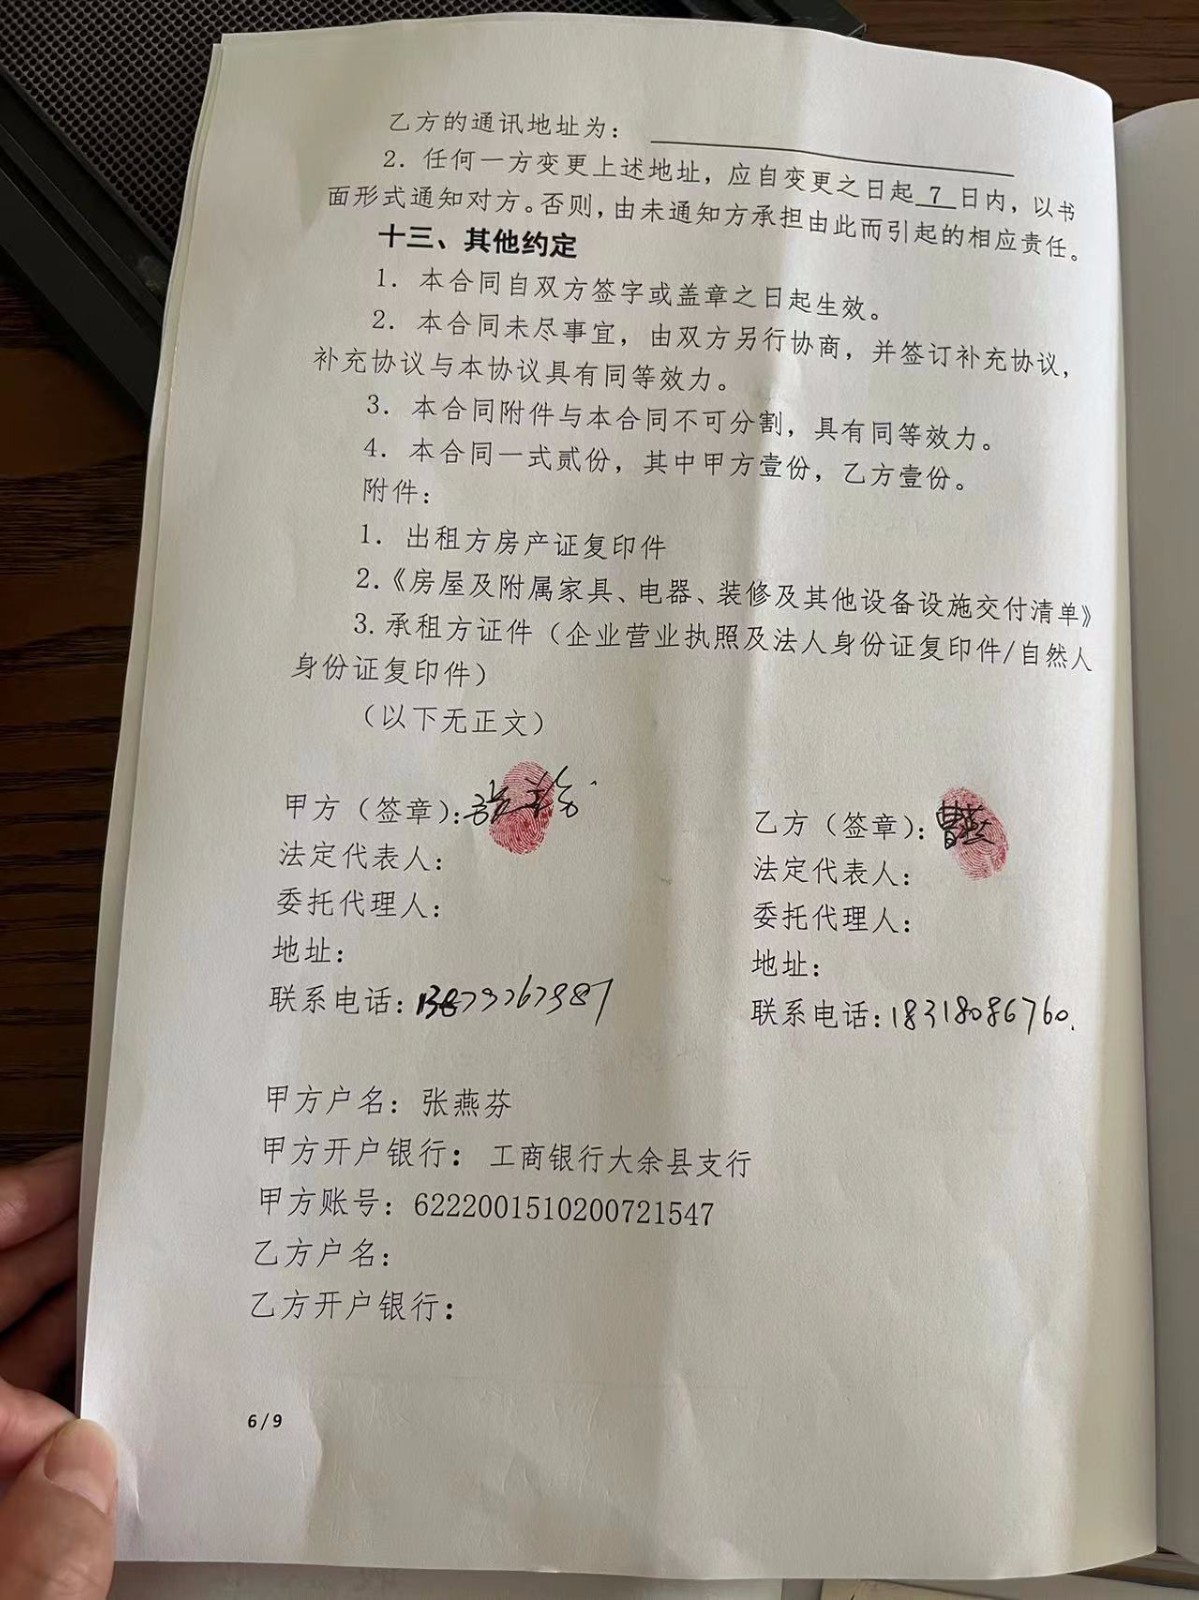 乙方的通讯地址为：
2. 任何一方变更上述地址，应自变更之日起 7 日内，以书
面形式通知对方。否则，由未通知方承担由此而引起的相应责任。
十三、其他约定
1. 本合同自双方签字或盖章之日起生效。
2. 本合同未尽事宜，由双方另行协商，并签订补充协议，
补充协议与本协议具有同等效力。
3. 本合同附件与本合同不可分割，具有同等效力。
4. 本合同一式贰份，其中甲方壹份，乙方壹份。
附件：
1. 出租方房产证复印件
2.《房屋及附属家具、电器、装修及其他设备设施交付清单》
3. 承租方证件（企业营业执照及法人身份证复印件/自然人
身份证复印件）
（以下无正文）
甲方（签章）：张燕芬
乙方（签章）：曹燕
法定代表人：
法定代表人：
委托代理人：
委托代理人：
地址：
地址：
联系电话：
联系电话：18318086760.
甲方户名：张燕芬
甲方开户银行：工商银行大余县支行
甲方账号：6222001510200721547
乙方户名：
乙方开户银行：
6/9